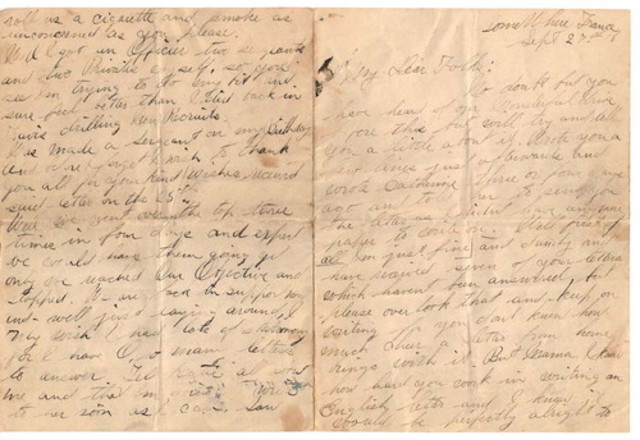 Somewhere France
Sept 27th
My Dear Folks:
No doubt but you
have heard of our Wonderful drive
fore this but will try and tell
you a little about it. Wrote you a
few lines just
wrote Catherine three or four days
ago and told her to send you
the letter as I didn't have any more
paper to write on. Well first of
all I'm just fine and dandy and
have received seven of your letters
which haven't been answered, but
please over look that and keep on
writing for you don't know how
much cheer a letter from home
brings with it. But Mama, I know
how hard you work in writing an
English letter and I know it
would be perfectly alright to
roll us a cigarette and smoke as
unconcerned as you please.
Well I got an Officer two sergeants
and two Privates myself, so you
see I'm trying to do my bit and
better than I did back in
drilling Recruits.
Was made a Sergeant on my Birthday
and forget to thank
you all for your kind wishes, received
said letter on the 25th.
Well we went over the top three
times in four days and expect
we would have them going yet
only we reached Our Objective and
stopped. We are back in support now
and well just laying around, I
only wish I had lots of stationery
for I have so many letters
to answer. Tell Katie all
me and that I'm Write
to her soon as I can. Saw